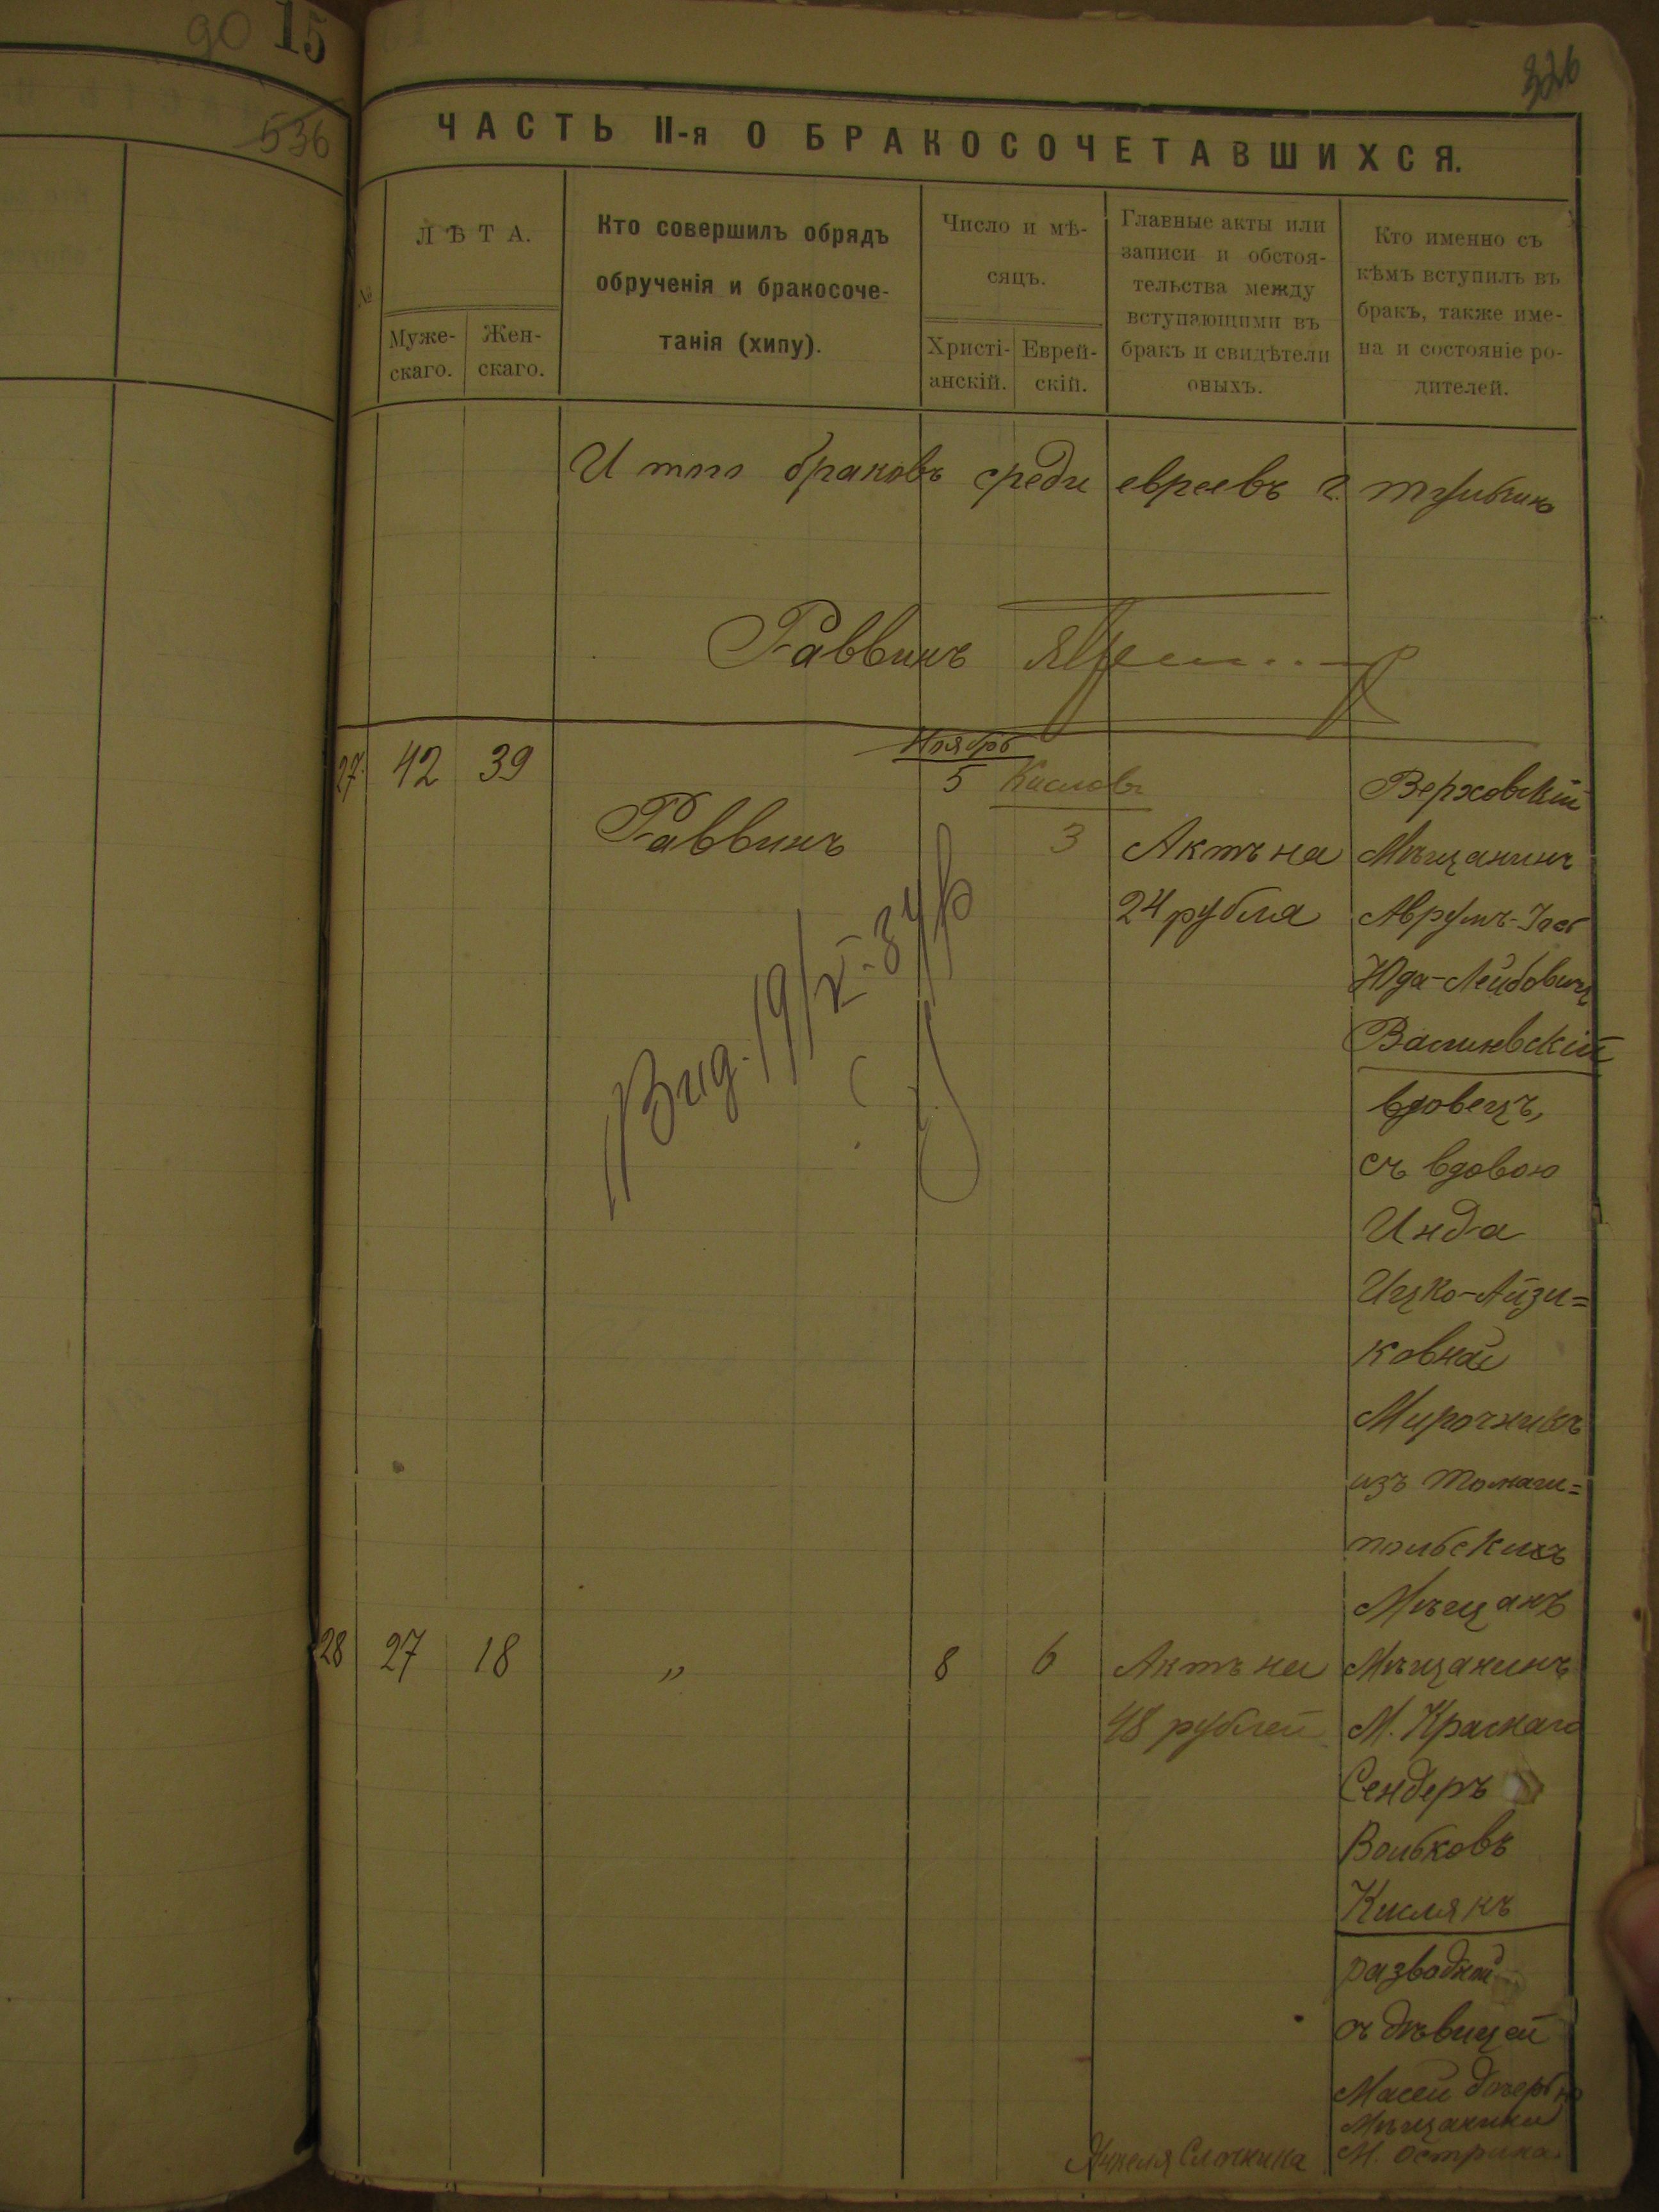 90 15
536
326
ЧАСТЬ II-я О БРАКОСОЧЕТАВШИХСЯ.
№
ЛѢТА.
Муже-
скаго.
Жен-
скаго.
Кто совершилъ обрядъ
обрученія и бракосоче-
танія (хипу).
Число и мѣ-
сяцъ.
Христі-
анскій.
Еврей-
скій.
Главные акты или
записи и обстоя-
тельства между
вступающими въ
бракъ и свидѣтели
оныхъ.
Кто именно съ
кѣмъ вступилъ въ
бракъ, также име-
на и состояніе ро-
дителей.
Итого браковъ среди евреевъ г.
Раввинъ
27. 42 39
Раввинъ
Ноябрь
5
Кислевъ
3
Актъ на
24 рубля
Верховскій
Мѣщанинъ
Аврумъ-Іось
Юда-Лейбовичъ
Василевскій
вдовецъ,
съ вдовою
Инда
Ицко-Айзи=
ковной
Мирочникъ
изъ Томаш=
польскихъ
Мѣщанъ
Вид. 19/V-34 р
28 27 18 „ 8 6
Актъ на
48 рублей
Мѣщанинъ
М. Краснаго
Сендеръ
Вольковъ
Кислякъ
разводной
съ дѣвицей
Масей дочерью
Мѣщанина
М. Острика